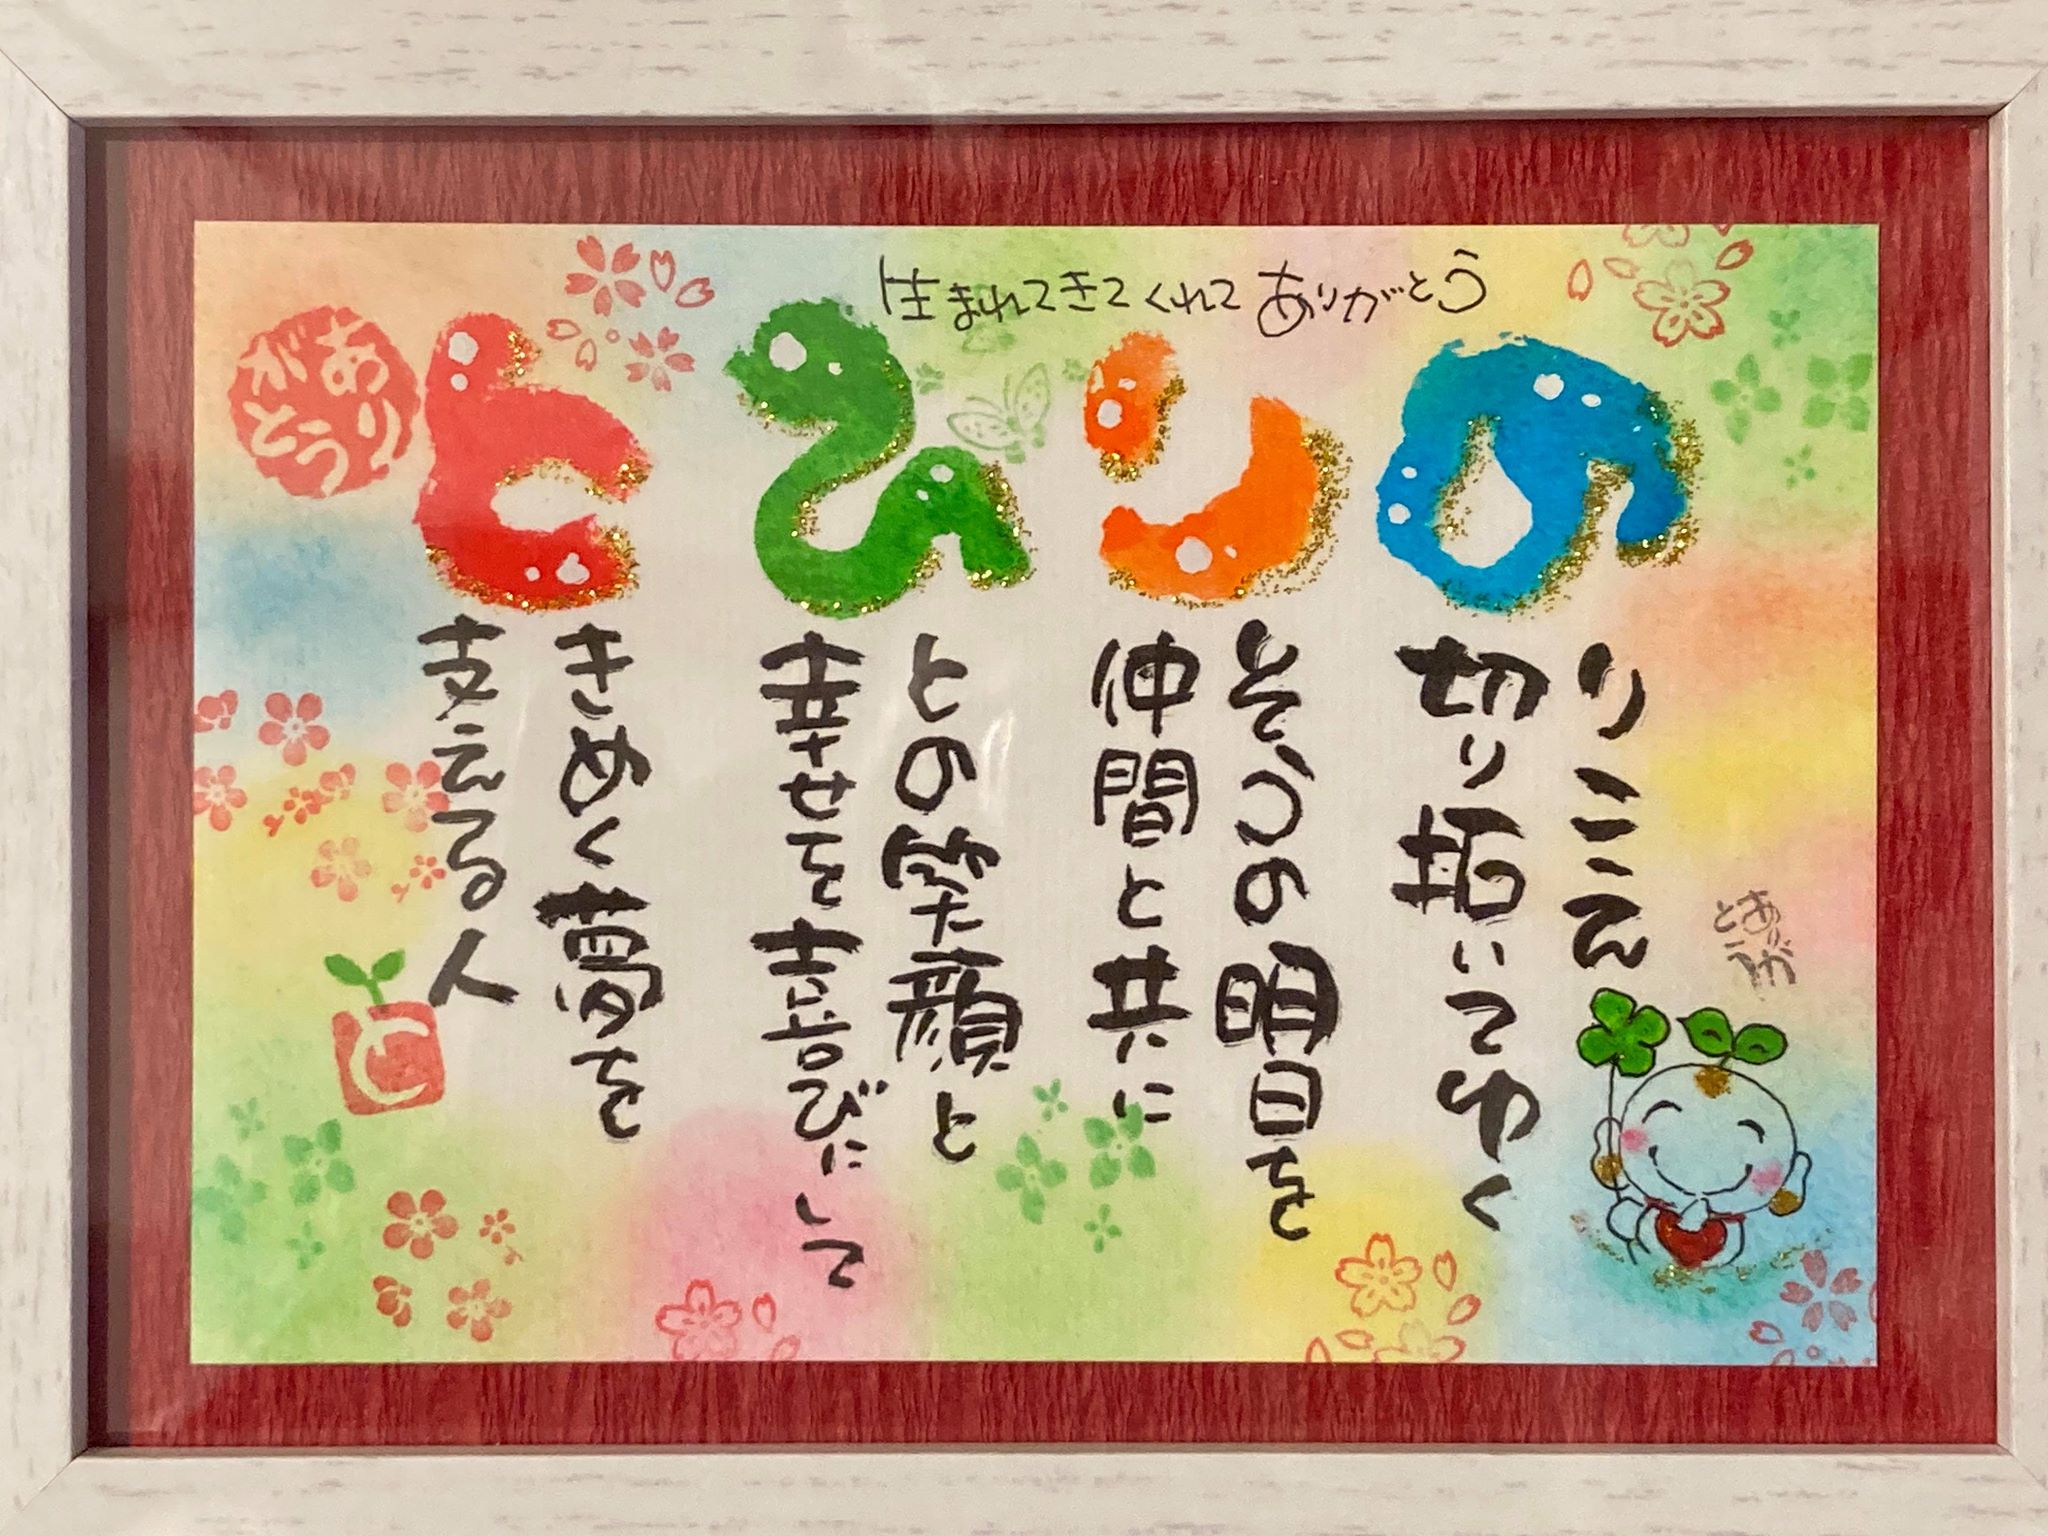 生まれてきてくれてありがとう
の
りこえ
切り拓いてゆく
り
そうの明日を
仲間と共に
ひ
との笑顔と
幸せを喜びにして
と
きめく夢を
支える人
ありがとう
ありがとう